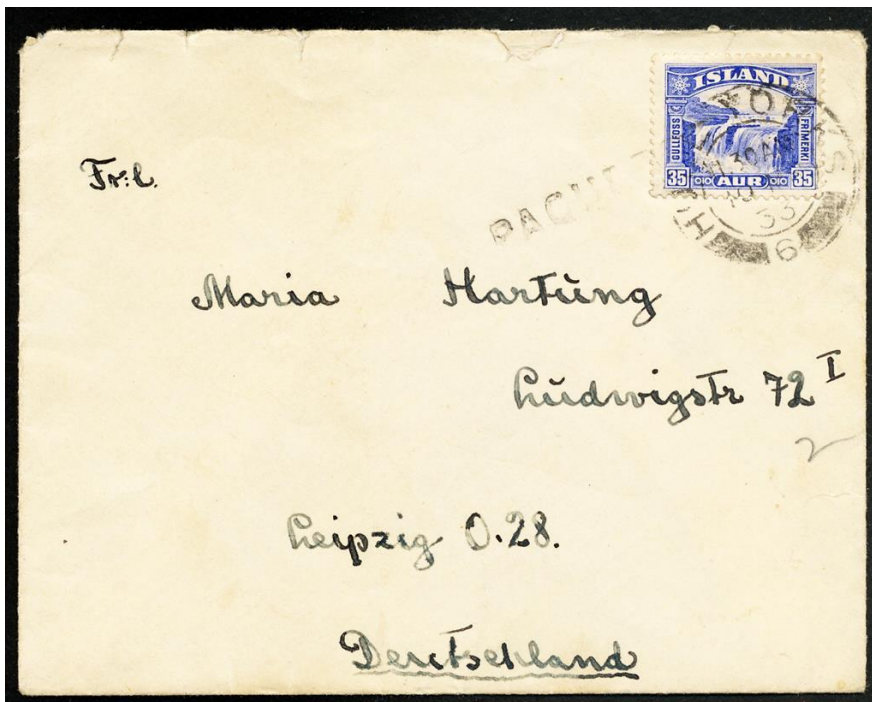 ISLAND
GULLFOSS
FRIMERKI
35 AUR 35
YORKS
33
6
PAQUE
Frl.
Maria Hartung
Ludwigstr 72 I
Leipzig O.28.
Deutschland